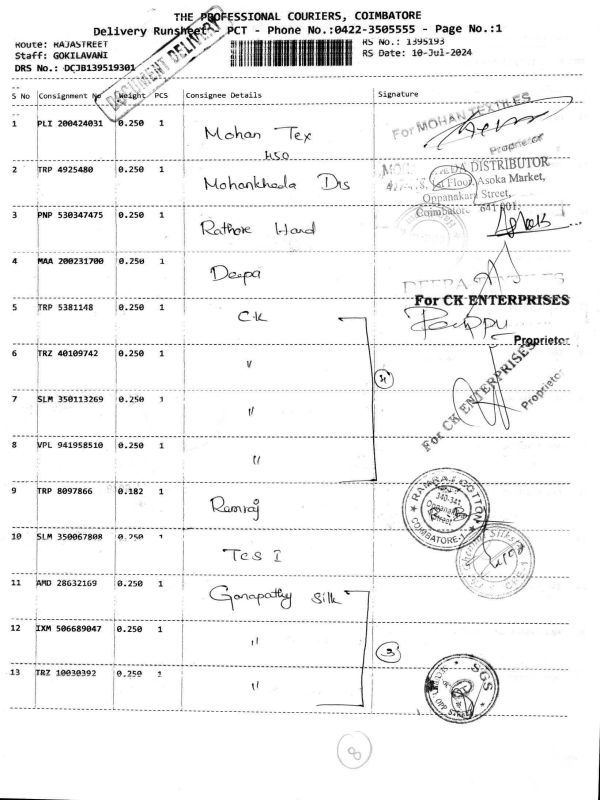 THE PROFESSIONAL COURIERS, COIMBATORE
Delivery Runsheet PCT - Phone No.:0422-3505555 - Page No.:1
Route: RAJASTREET RS No.: 1395193
Staff: GOKILAVANI RS Date: 10-Jul-2024
DRS No.: DCJB139519301
DOCUMENT DELIVERY
S No Consignment No Weight PCS Consignee Details Signature
1 PLI 200424031 0.250 1 Mohan Tex
H50
For MOHAN TEXTILES
Proprietor
2 TRP 4925480 0.250 1 Mohankheda Dis
DISTRIBUTOR
1st Floor, Asoka Market,
Oppanakara Street,
Coimbatore 641 001.
3 PNP 530347475 0.250 1 Rathore Hand
Ashok
4 MAA 200231700 0.250 1 Deepa
DEEPA
5 TRP 5381148 0.250 1 CK
For CK ENTERPRISES
Pappu
Proprietor
6 TRZ 40109742 0.250 1 "
4
For CK ENTERPRISES
Proprietor
7 SLM 350113269 0.250 1 "
8 VPL 941958510 0.250 1 "
9 TRP 8097866 0.182 1 Ramraj
RAMRAJ COTTON
340-341,
Oppanakara
Street
COIMBATORE-1
10 SLM 350067808 0.250 1 TCS I
Silks
CBE-1
11 AMD 28632169 0.250 1 Ganapathy Silk
12 IXM 506689047 0.250 1 "
3
13 TRZ 10030392 0.250 1 "
SGS
OPP STREET
8